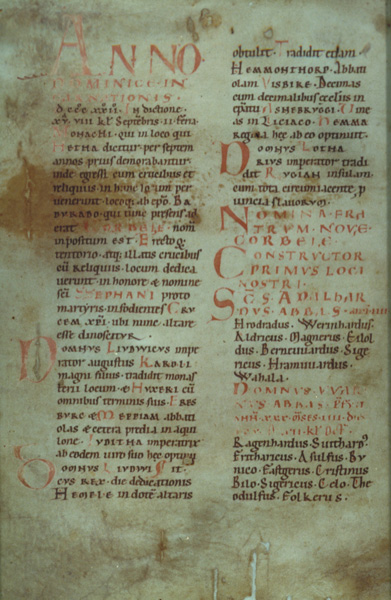 ANNO
DOMINICE IN
CARNATIONIS
DCCC XXII. Indictione
XV. VIII kl Septẽbris. II. feria.
Monachi. qui in loco qui
Hetha dicitur per septem
annos prius demorabantur
inde egressi cum crucibus et
reliquiis in hunc locum per
venerunt. locoq; ab ep̃o. BA
DURADO. qui tunc presens ad
erat nom̃
inpositum est. Erectoq;
tentorio. atq; illatis crucibus
cũ reliquiis. locum dedica
uerunt in honore & nomine
sc̃i STEPHANI proto
martyris. infodientes CRU
CEM XPI. ubi nunc altare
esse dinoscitur.
Domnus LUDUUICUS impe
rator augustus KAROLI
magni filius. tradidit monas
terii locum. & HUXERI cũ
omnibus terminis suis. ERES
BURC & MEPPIAM abbati
olas & cetera predia in aqui
lone. IUDITHA imperatrix
ab eodem uiro suo hec optinuit
Domnus LUDUUI
CUS REX. die dedicationis
HEMELE in dotẽ altaris
obtulit. Tradidit etiam
HEMMONTHORP. Abbati
olam VISBIRE. Decimas
cum decimalibus ecclesiis in
ep̃atu ASNEBRUGGI. Uine
as in LICIACO. HEMMA
regina hec ab eo optinuit.
Domnus LOTHA
RIUS imperator tradi
dit RUOIAN insulam.
cum tota circumiacente p
uincia slauorum.
NOMINA FRA
TRUM NOUE
CORBEIE.
CONSTRUCTOR
PRIMUS LOCI
NOSTRI.
SCS ADALHAR
DUS ABBAS.
Hrodradus. Werinhardus.
Aldricus. Magnerus. Eilol
dus. Bernuuardus. Sige
ricus. Hrammuuardus.
Wahala.
DOMNUS WARI
NUS ABBAS.
Raginhardus. Suithardus.
Frithuricus. Asulfus. Bu
nico. Fastgerus. Cristinus
Bilo. Sigericus. Celo. The
odulfus. Folkerus.